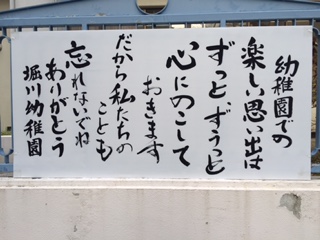 幼稚園での
楽しい思い出は
ずっと、ずうっと
心にのこして
おきます
だから私たちの
ことも
忘れないでね
ありがとう
堀川幼稚園